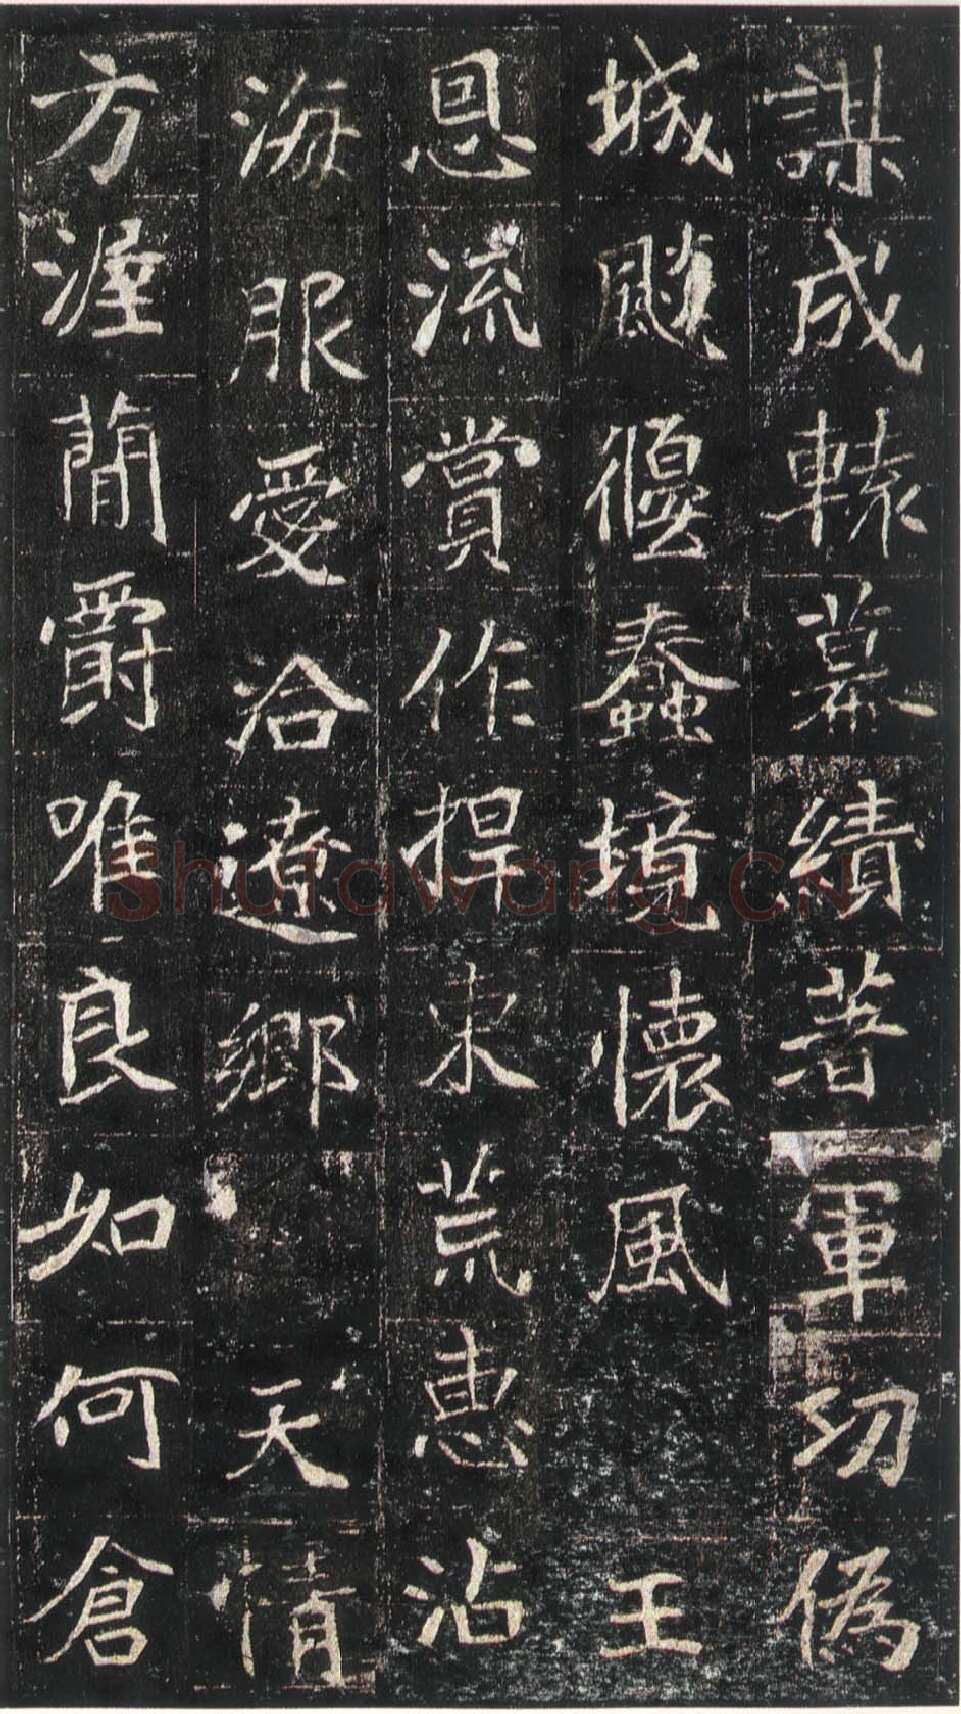 謀成轅幕績著軍功偽
城飈偃蠢境懷風 王
恩流賞作捍東荒惠沾
海服愛洽遼鄉 天情
方渥蕳爵唯良如何倉
Shufawang.CN